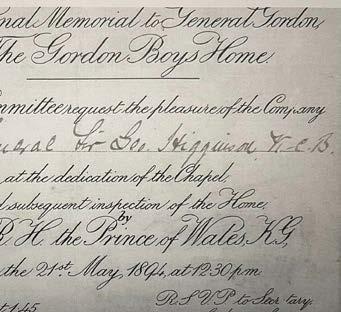 nal Memorial to General Gordon,
The Gordon Boys Home.
mmittee request the pleasure of the Company
neral Sir Geo. Higginson K.C.B.
at the dedication of the Chapel
d subsequent inspection of the Home,
by
R. H. the Prince of Wales, K.G,
the 21st May, 1894, at 12.30 p.m
at 1.45
R.S.V.P to Secr tary.